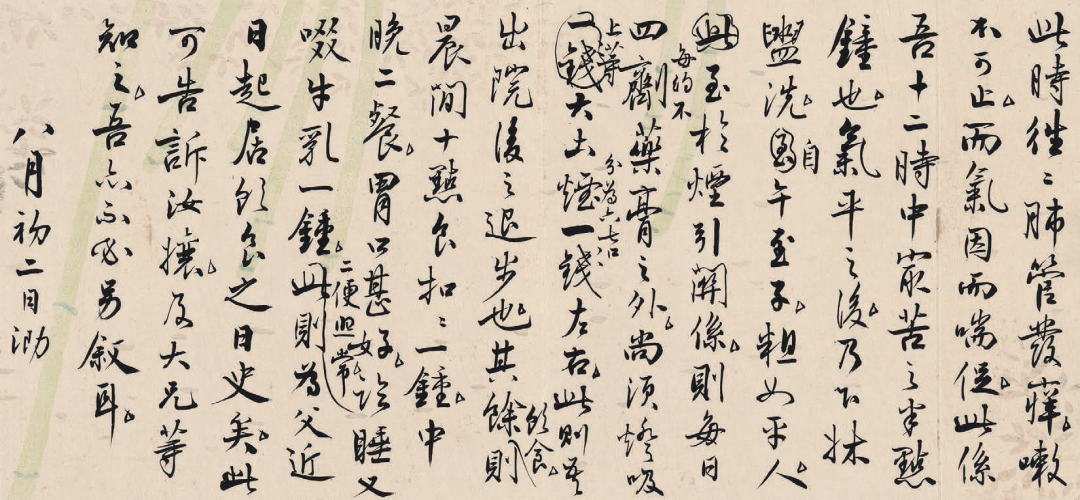 此時往〻肺管發癢。嗽
不可止。而氣因而喘促。此係
吾十二時中最苦之半點
鐘也。氣平之後。乃下牀
盥洗。自
午至子。粗如平人。
至於煙引關係。則每日
每的不
四劑藥膏之外。尚須燈吸
上等
分為六七口
大土煙一錢左右。此則是
出院後之退步也。其餘飲食。則
晨間十點食扣〻一鍾。中
晚二餐。胃口甚好。臨睡又
二便照常
啜牛乳一鍾。此則為父近
日起居飲食之日史矣。此
可告訴汝孃。及大兄等
知之。吾亦不必另敘耳。
八月初二日泐